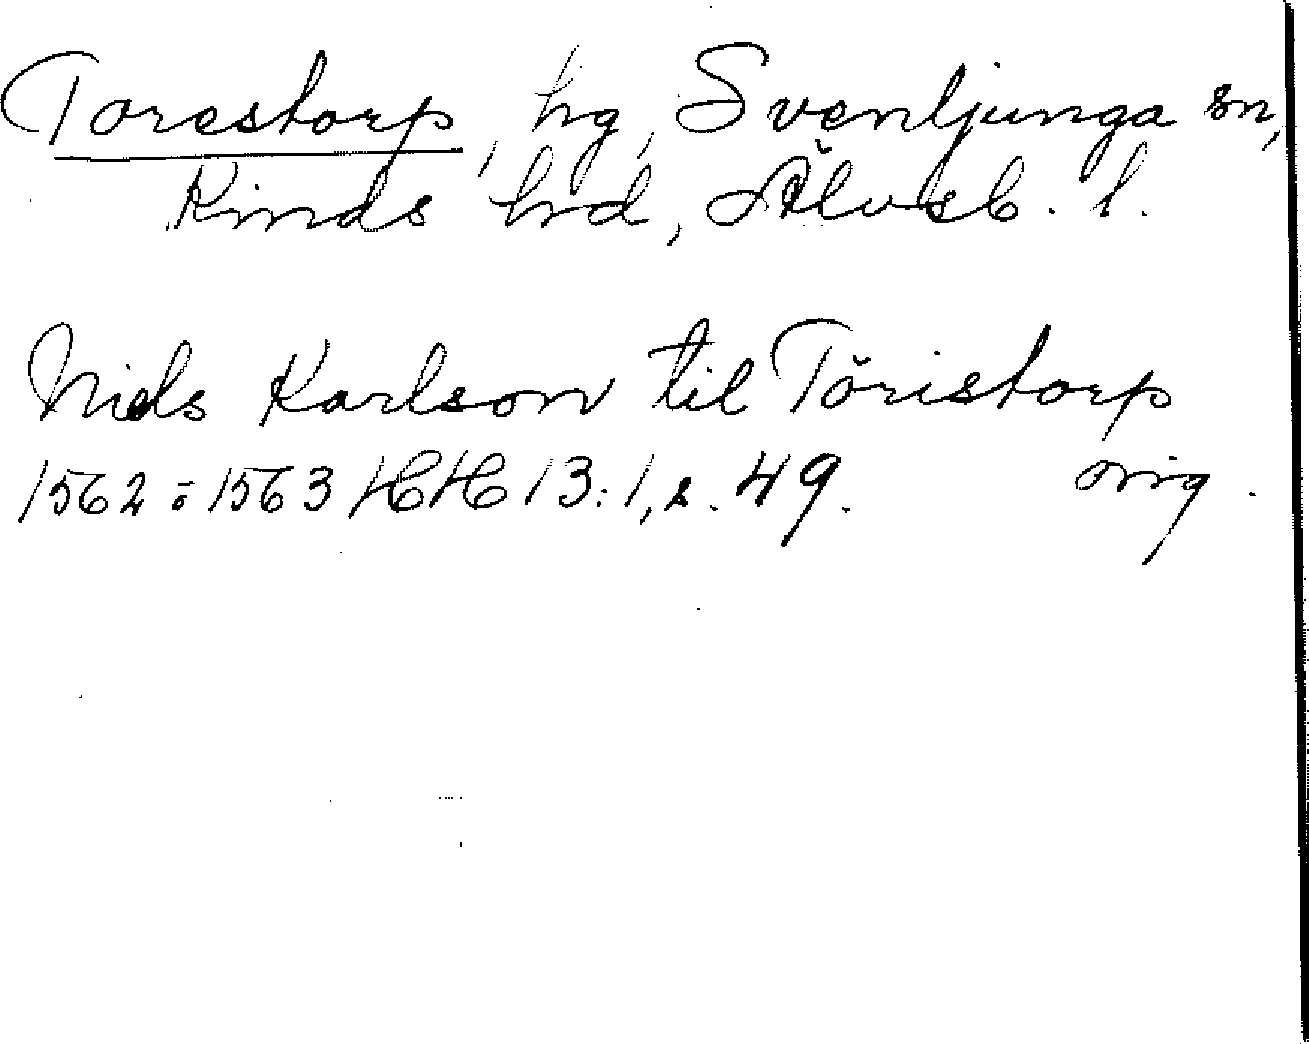 Torestorp, hg, Svenljunga sn,
Kinds hrd, Älvsb. l.
Niels Karlson til Töristorp
1562 o 1563 HH 13:1, s. 49. orig.